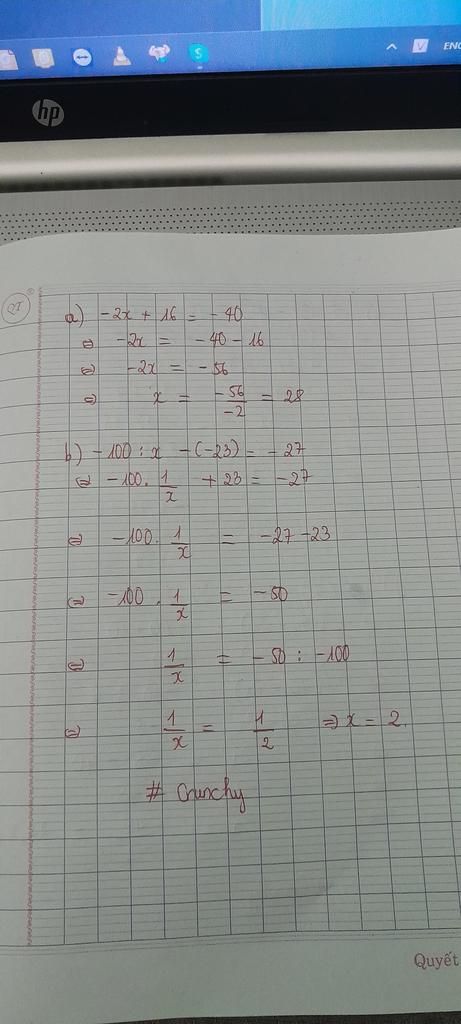 V
ENG
hp
QT
a) -2x + 16 = -40
⇔ -2x = -40 - 16
⇔ -2x = -56
⇔ x = -56/-2 = 28
b) -100 : x - (-23) = -27
⇔ -100 . 1/x + 23 = -27
⇔ -100 . 1/x = -27 - 23
⇔ -100 . 1/x = -50
⇔ 1/x = -50 : -100
⇔ 1/x = 1/2 ⇒ x = 2.
# Crunchy
Quyết